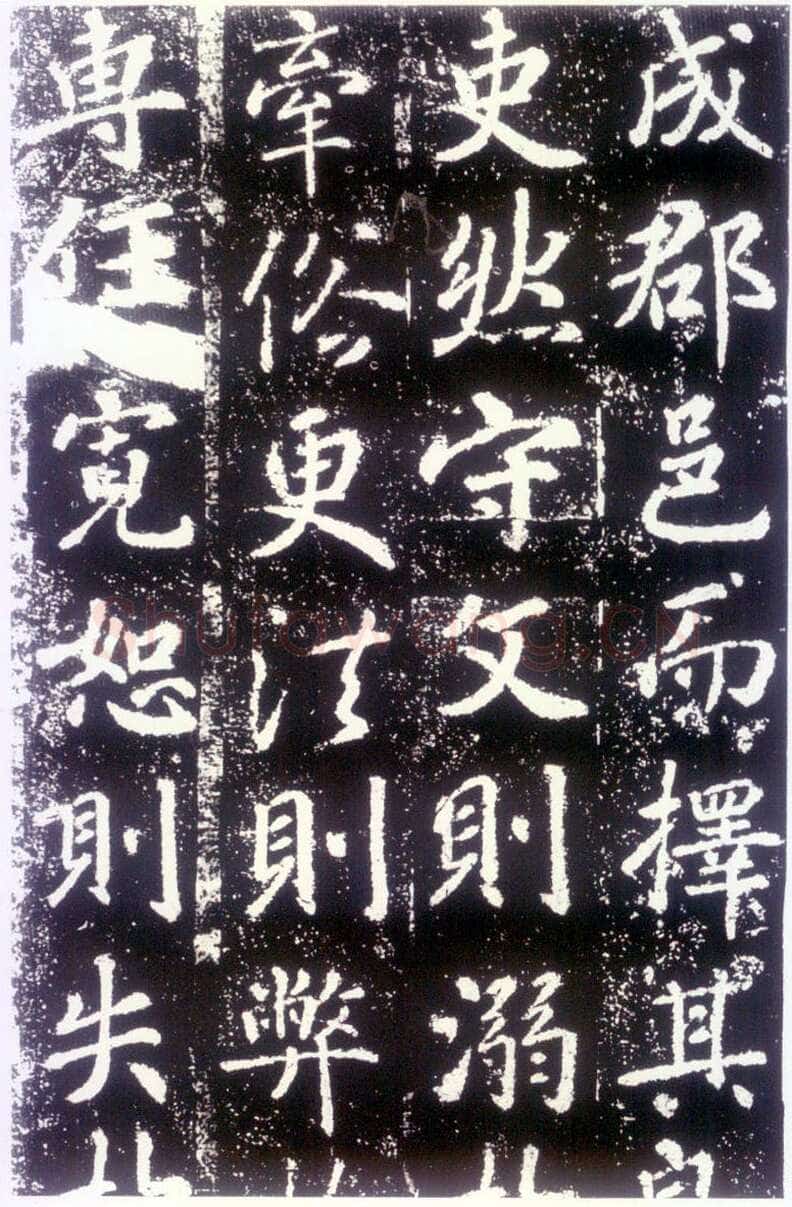 成郡邑而擇其
吏然守文則溺
牽俗更法則弊
專任寬恕則失
Shufawang.CN